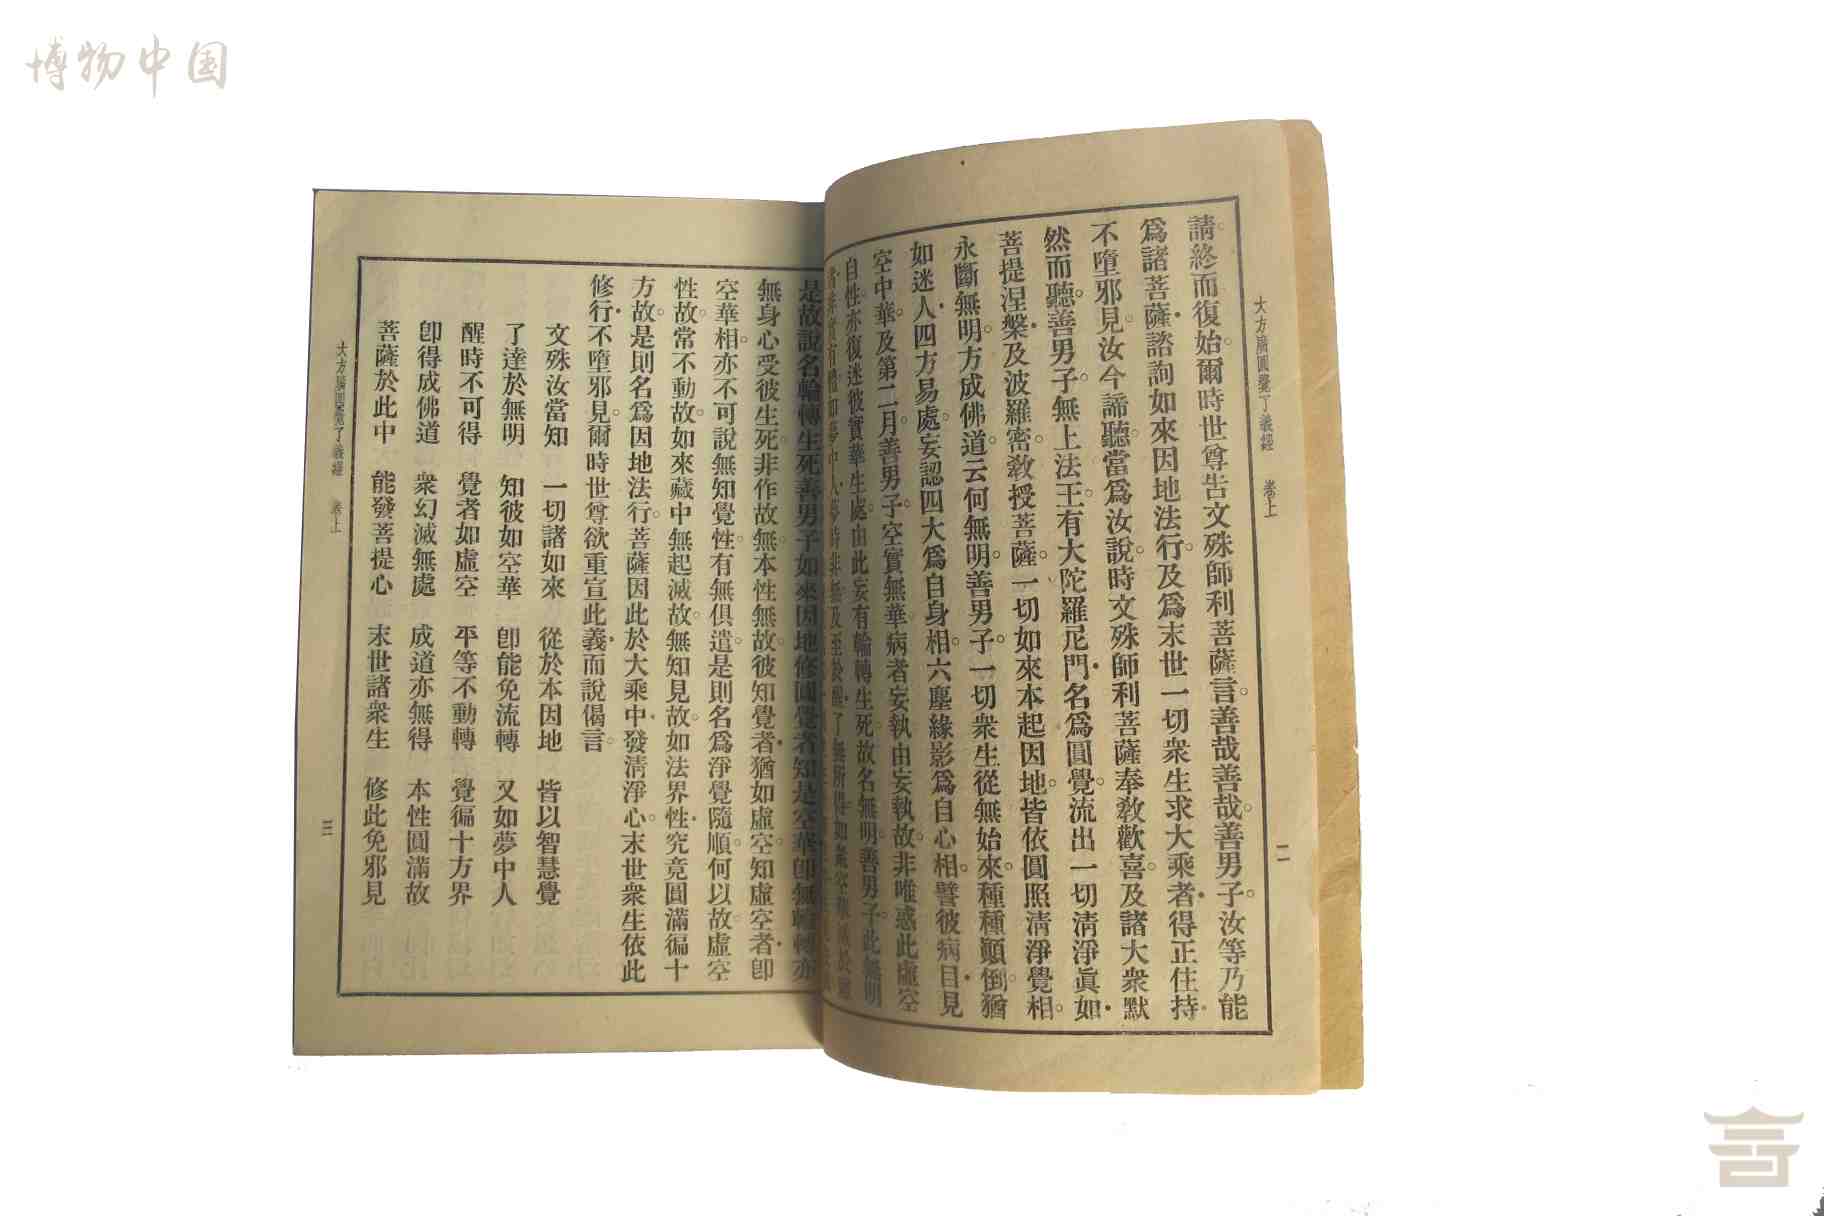 博物中国
大方廣圓覺了義經 卷上 二
請終而復始。爾時世尊告文殊師利菩薩言。善哉善哉。善男子。汝等乃能
爲諸菩薩・諮詢如來因地法行。及爲末世一切衆生求大乘者・得正住持・
不墮邪見。汝今諦聽。當爲汝說。時文殊師利菩薩奉教歡喜。及諸大衆默
然而聽。善男子。無上法王。有大陀羅尼門・名爲圓覺。流出一切淸淨眞如・
菩提涅槃・及波羅密。敎授菩薩。一切如來本起因地。皆依圓照淸淨覺相。
永斷無明。方成佛道。云何無明。善男子。一切衆生從無始來。種種顚倒。猶
如迷人・四方易處。妄認四大爲自身相。六塵緣影爲自心相。譬彼病目・見
空中華。及第二月。善男子。空實無華。病者妄執。由妄執故。非唯惑此虛空
自性。亦復迷彼實華生處。由此妄有輪轉生死。故名無明。善男子。此無明
是故說名輪轉生死善男子如來因地修圓覺者知是空華卽無輪轉亦
無身心受彼生死。非作故無。本性無故。彼知覺者・猶如虛空。知虛空者・卽
空華相。亦不可說無知覺性。有無俱遣。是則名爲淨覺隨順。何以故。虛空
性故。常不動故。如來藏中無起滅故。無知見故。如法界性・究竟圓滿徧十
方故。是則名爲因地法行。菩薩因此於大乘中・發淸淨心。末世衆生依此
修行・不墮邪見。爾時世尊欲重宣此義・而說偈言。
文殊汝當知 一切諸如來 從於本因地 皆以智慧覺
了達於無明 知彼如空華 卽能免流轉 又如夢中人
醒時不可得 覺者如虛空 平等不動轉 覺徧十方界
卽得成佛道 衆幻滅無處 成道亦無得 本性圓滿故
菩薩於此中 能發菩提心 末世諸衆生 修此免邪見
大方廣圓覺了義經 卷上 三